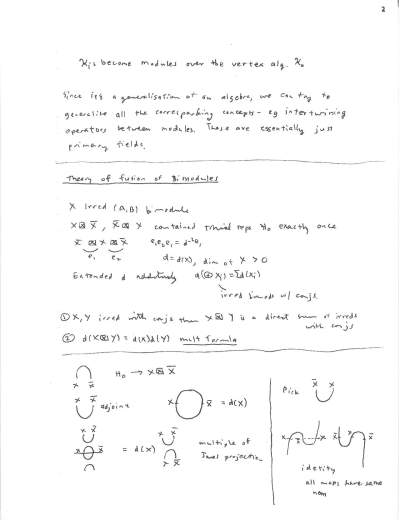 2
ℋᵢ's become modules over the vertex alg. ℋ₀
Since it's a generalisation of an algebra, we can try to
generalise all the corresponding concepts - eg intertwining
operators between modules. These are essentially just
primary fields.
Theory of fusion of Bimodules
X irred (A,B) bimodule
X⊠X̄, X̄⊠X contained trivial reps H₀ exactly once
X̄ ⊠ X ⊠ X̄ e₁e₂e₁ = d⁻²e₁
e₁ e₂ d = d(X), dim of X > 0
Extended d additively d(⊕Xᵢ) = Σd(Xᵢ)
irred bimods w/ conjs
① X, Y irred with conjs then X⊠Y is a direct sum of irreds
with conjs
② d(X⊠Y) = d(X)d(Y) mult formula
H₀ → X⊠X̄
X X̄
X X̄
adjoint
X X̄ = d(X)
X X̄
X X̄
= d(X)
X X̄
X X̄
multiple of
Jones projection
Pick X̄ X
X X̄ X X̄ X X̄
identity
all maps have same
norm